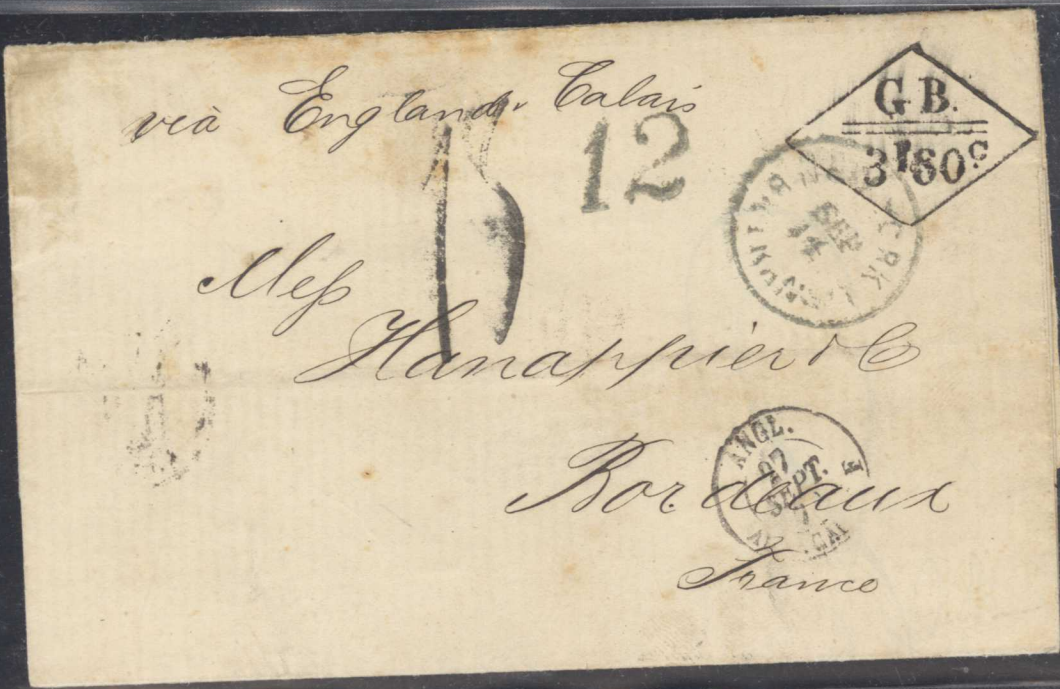 via England Calais
G B.
3F 60c
12
15
NEW YORK
SEP
14
Mess
Hanappier & C
ANGL.
27
SEPT.
Bordeaux
France